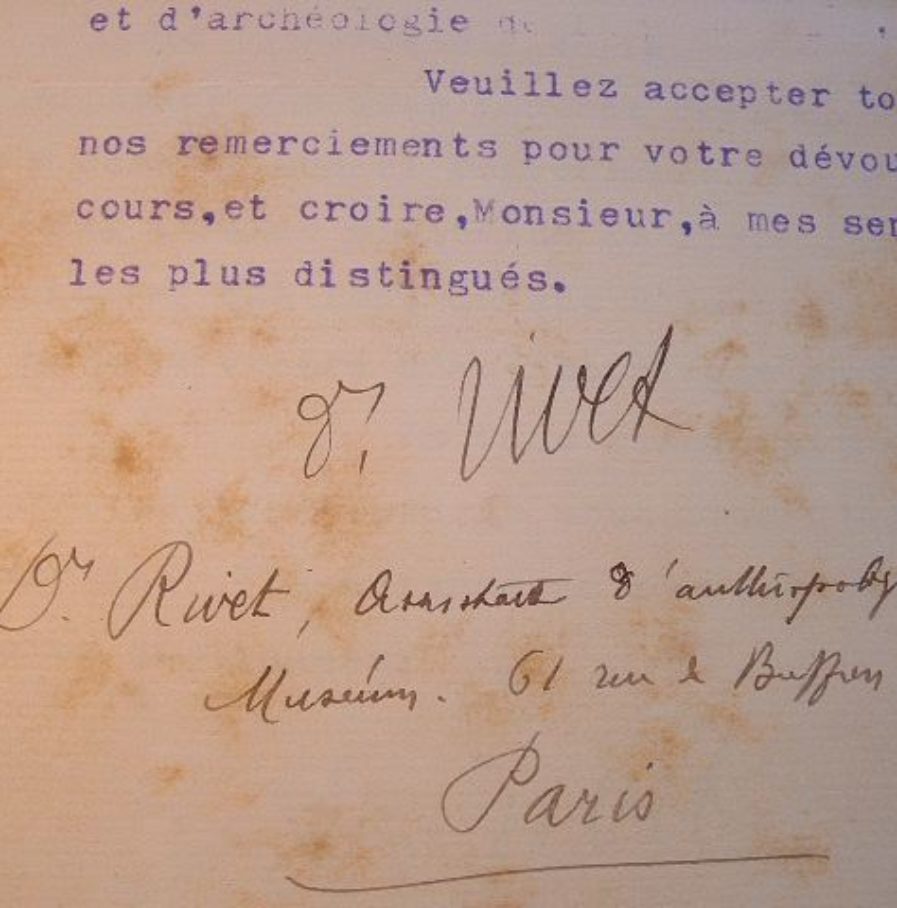 et d'archéologie de
Veuillez accepter to
nos remerciements pour votre dévou
cours,et croire,Monsieur,à mes sen
les plus distingués.
Dr Rivet
Dr. Rivet, Assistant d'anthropolog
Muséum. 61 rue de Buffon
Paris